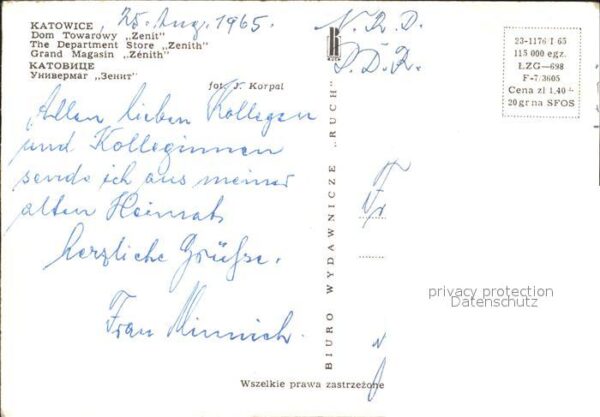 KATOWICE, 25. Aug. 1965.
Dom Towarowy „Zenit"
The Department Store „Zenith"
Grand Magasin „Zénith"
КАТОВИЦЕ
Универмаг „Зенит"
fot. J. Korpal
N.R.D.
D.D.R.
23-1176 I 65
115 000 egz.
ŁZG—698
F-7/3605
Cena zł 1,40
20 gr na SFOS
Allen lieben Kollegen
und Kolleginnen
sende ich aus meiner
alten Heimat
herzliche Grüße.
Frau Minnich.
BIURO WYDAWNICZE „RUCH"
Wszelkie prawa zastrzeżone
privacy protection
Datenschutz